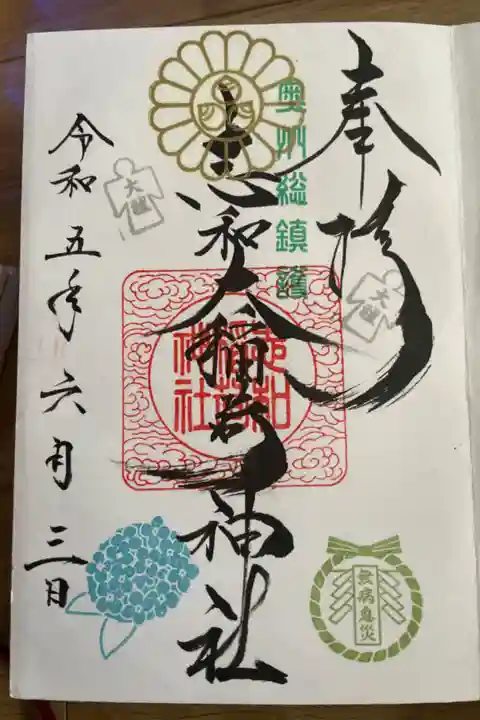 奉拝
奥州総鎮護
志和大稲荷神社
志和
稲荷
神社
令和五年六月三日
大祓
大祓
無病息災